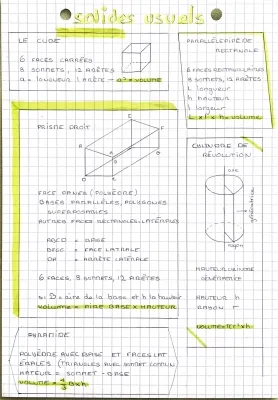 solides usuels
LE CUBE
6 FACES CARRÉES
8 SOMMETS, 12 ARÊTES
a = LONGUEUR 1 ARÊTE - a³ = VOLUME
PARALLÉLÉPIPÈDE
RECTANGLE
6 FACES RECTANGULAIRES
8 SOMMETS, 12 ARÊTES
L longueur
h hauteur
l largeur
L x l x h = VOLUME
PRISME DROIT
BASES PARALLÈLES, POLYGONES
SUPERPOSABLES
AUTRES FACES RECTANGLES: LATÉRALES
= BASE
= FACE LATÉRALE
= ARÊTE LATÉRALE
6 FACES, 8 SOMMETS, 12 ARÊTES
si B = aire de la base et h la hauteur
VOLUME = AIRE BASE x HAUTEUR
CYLINDRE DE
RÉVOLUTION
axe
génératrice
rayon
HAUTEUR
GÉNÉRATRICE
HAUTEUR h
RAYON r
PYRAMIDE
POLYÈDRE AVEC BASE ET FACES LAT
ÉRALES (TRIANGLES AVEC SOMMET COMMUN
HAUTEUR = SOMMET - BASE
VOLUME = 1/3 B x h